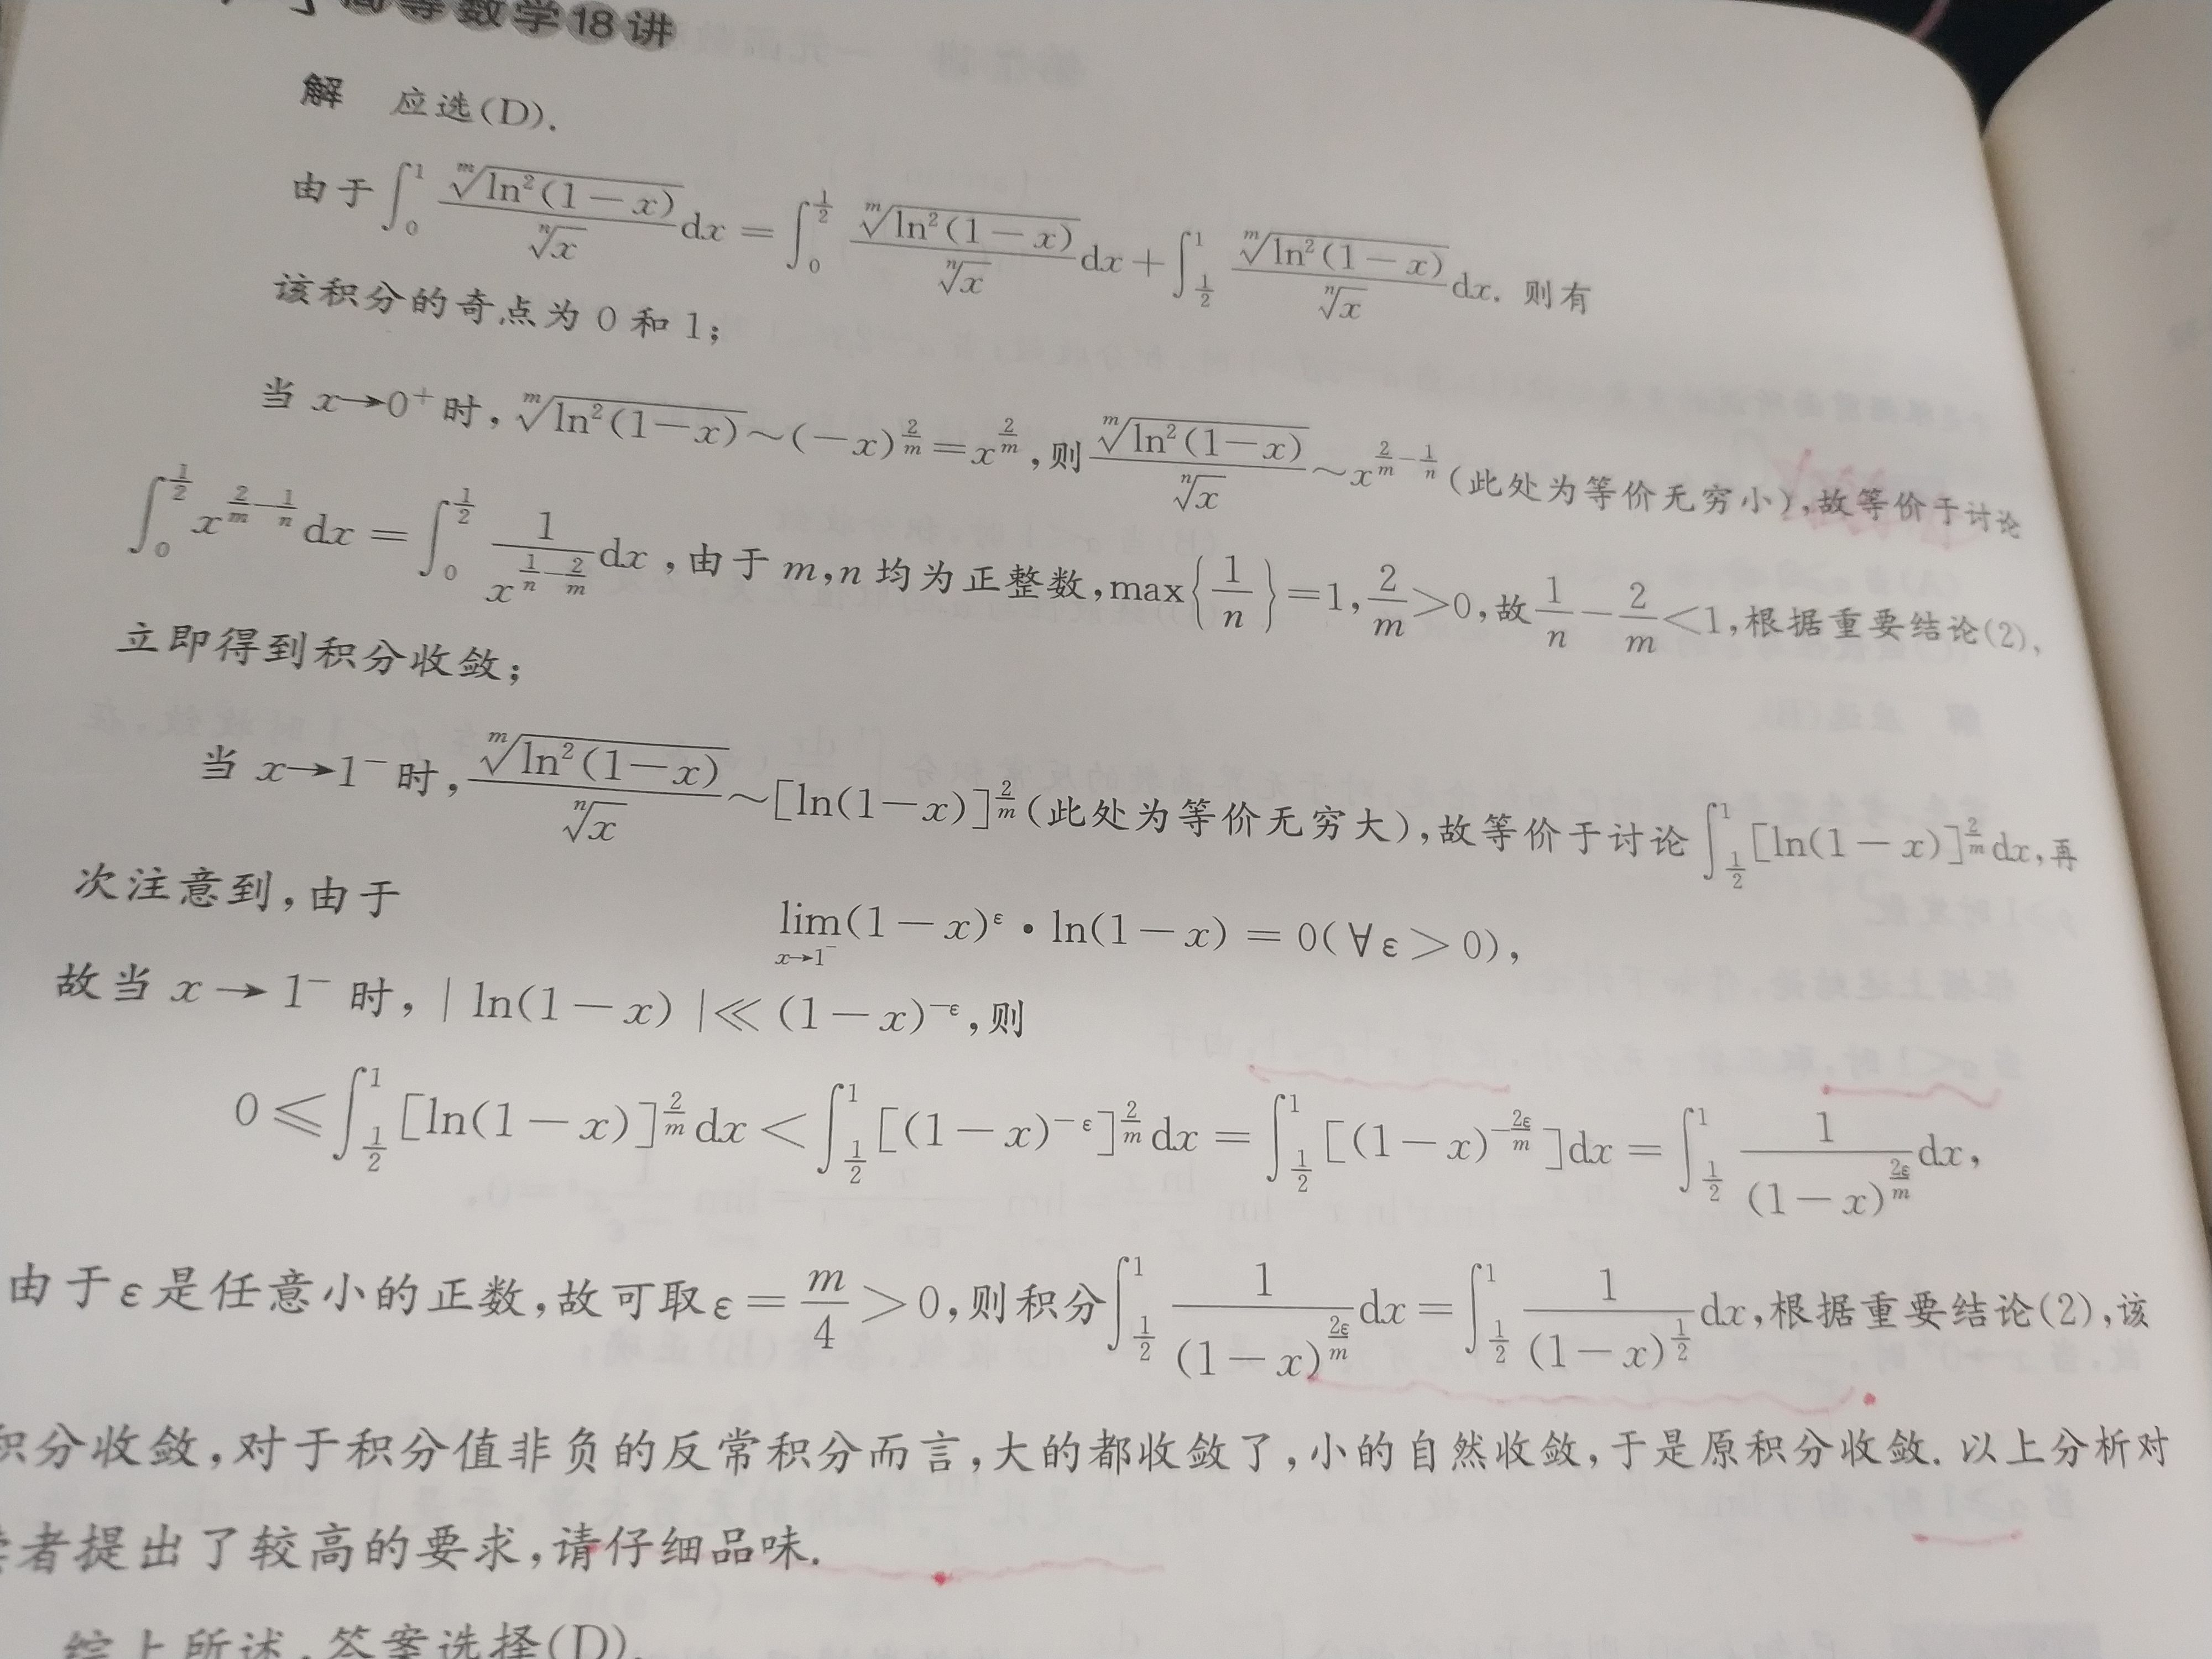 高等数学18讲
解 应选(D).
由于$\int_0^1 \frac{\sqrt[m]{\ln^2(1-x)}}{\sqrt[n]{x}}dx = \int_0^{\frac{1}{2}} \frac{\sqrt[m]{\ln^2(1-x)}}{\sqrt[n]{x}}dx + \int_{\frac{1}{2}}^1 \frac{\sqrt[m]{\ln^2(1-x)}}{\sqrt[n]{x}}dx$. 则有
该积分的奇点为 0 和 1;
当 $x→0^+$ 时, $\sqrt[m]{\ln^2(1-x)} \sim (-x)^{\frac{2}{m}} = x^{\frac{2}{m}}$, 则 $\frac{\sqrt[m]{\ln^2(1-x)}}{\sqrt[n]{x}} \sim x^{\frac{2}{m}-\frac{1}{n}}$ (此处为等价无穷小), 故等价于讨论
$\int_0^{\frac{1}{2}} x^{\frac{2}{m}-\frac{1}{n}}dx = \int_0^{\frac{1}{2}} \frac{1}{x^{\frac{1}{n}-\frac{2}{m}}}dx$, 由于 m,n 均为正整数, $\max\left\{\frac{1}{n}\right\}=1, \frac{2}{m}>0$, 故 $\frac{1}{n}-\frac{2}{m}<1$, 根据重要结论(2),
立即得到积分收敛;
当 $x→1^-$ 时, $\frac{\sqrt[m]{\ln^2(1-x)}}{\sqrt[n]{x}} \sim [\ln(1-x)]^{\frac{2}{m}}$ (此处为等价无穷大), 故等价于讨论 $\int_{\frac{1}{2}}^1 [\ln(1-x)]^{\frac{2}{m}}dx$, 再
次注意到, 由于
$\lim_{x→1^-}(1-x)^ε \cdot \ln(1-x) = 0(∀ε>0)$,
故当 $x→1^-$ 时, $|\ln(1-x)| ≪ (1-x)^{-ε}$, 则
$0 ≤ \int_{\frac{1}{2}}^1 [\ln(1-x)]^{\frac{2}{m}}dx < \int_{\frac{1}{2}}^1 [(1-x)^{-ε}]^{\frac{2}{m}}dx = \int_{\frac{1}{2}}^1 [(1-x)^{-\frac{2ε}{m}}]dx = \int_{\frac{1}{2}}^1 \frac{1}{(1-x)^{\frac{2ε}{m}}}dx$,
由于 ε 是任意小的正数, 故可取 $ε=\frac{m}{4}>0$, 则积分 $\int_{\frac{1}{2}}^1 \frac{1}{(1-x)^{\frac{2ε}{m}}}dx = \int_{\frac{1}{2}}^1 \frac{1}{(1-x)^{\frac{1}{2}}}dx$, 根据重要结论(2), 该
积分收敛, 对于积分值非负的反常积分而言, 大的都收敛了, 小的自然收敛, 于是原积分收敛. 以上分析对
者提出了较高的要求, 请仔细品味.
综上所述, 答案选择(D).